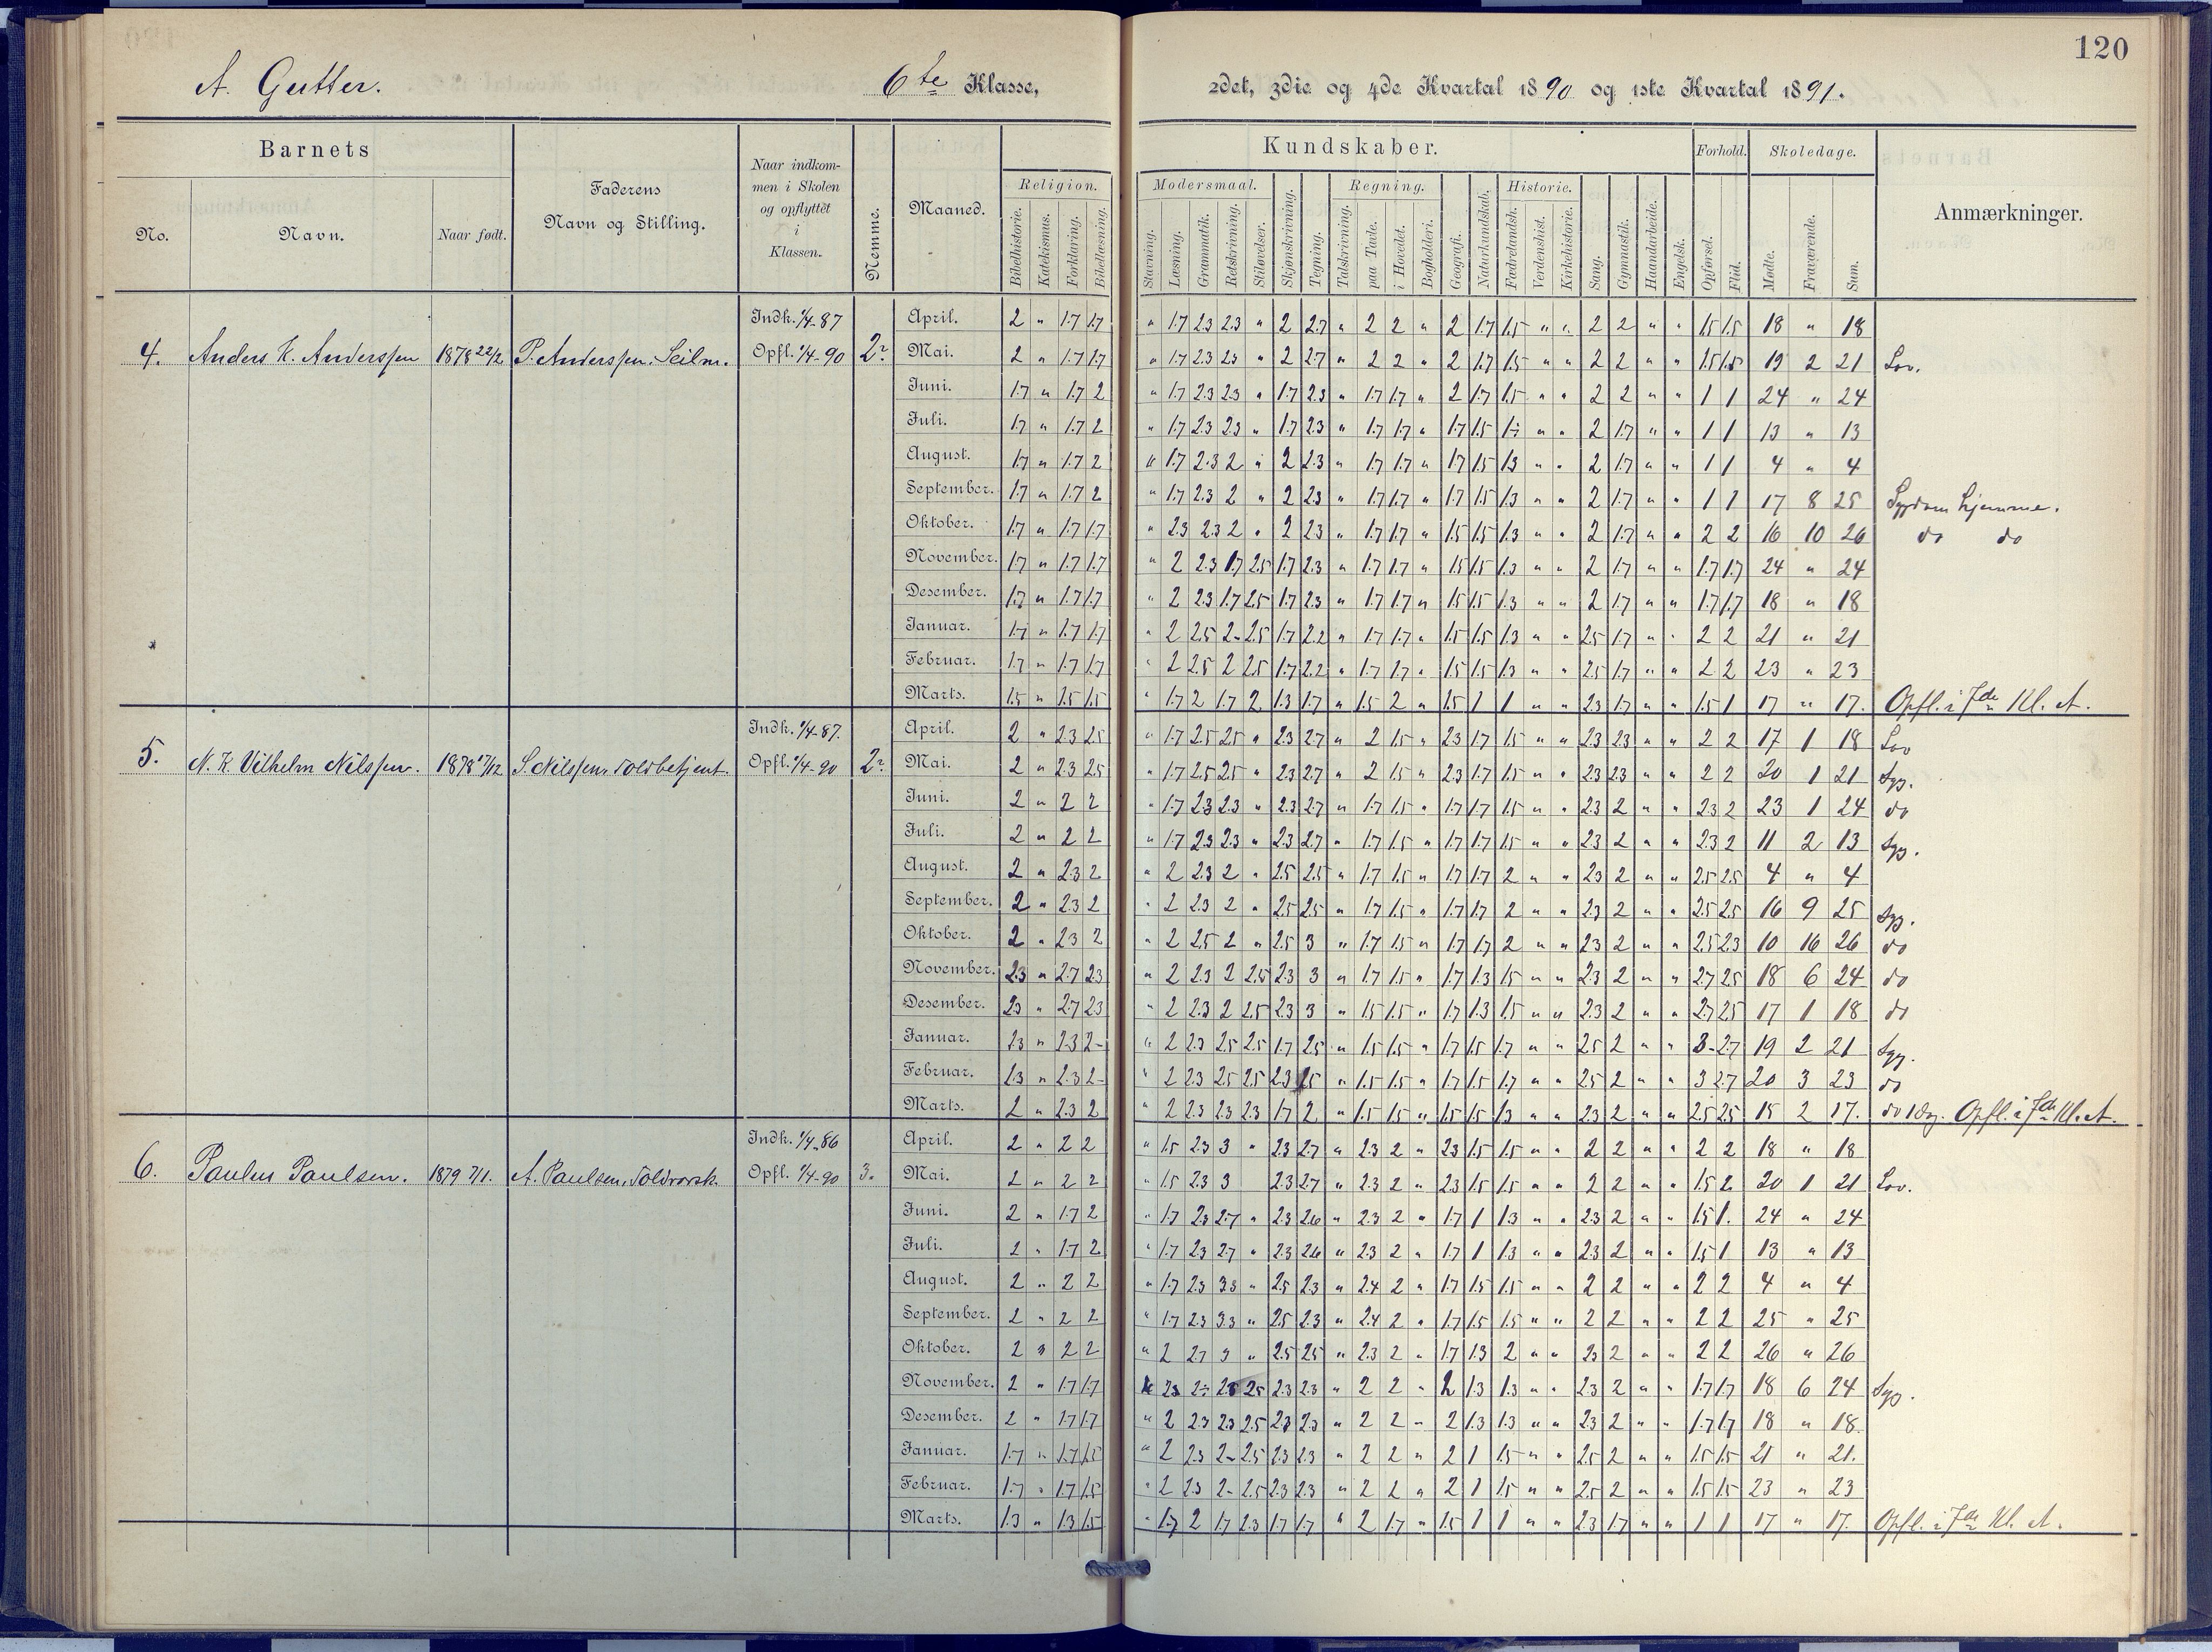 120
A. Gutter. 6te Klasse, 2det, 3die og 4de Kvartal 1890 og 1ste Kvartal 1891.
Barnets
No. Navn. Naar født.
Faderens Navn og Stilling.
Naar indkommen i Skolen og opflyttet i Klassen.
Nemme.
Maaned.
Kundskaber.
Religion.
Bibelhistorie. Katekismus. Forklaring. Bibellæsning.
Modersmaal.
Stavning. Læsning. Grammatik. Retskrivning. Stiløvelser.
Skjønskrivning. Tegning.
Regning.
Talskrivning. paa Tavle. i Hovedet. Bogholderi.
Geografi. Naturkundskab.
Historie.
Fædrelandsh. Verdenshist. Kirkehistorie.
Sang. Gymnastik. Haandarbeide. Engelsk.
Forhold.
Opførsel. Flid.
Skoledage.
Mødte. Fraværende. Sum.
Anmærkninger.
4. Anders K. Anderssen 1878 22/2 P. Anderssen. Seilm. Indk. 1/4-87 Opfl. 1/4-90 2?
April. 2 " 1.7 1.7 " 1.7 2.3 2.3 " 2 2.7 " 2 2 " 2 1.7 1.5 " " 2 2 " " 1.5 1.5 18 " 18
Mai. 2 " 1.7 1.7 " 1.7 2.3 2.3 " 2 2.7 " 2 2 " 2 1.7 1.5 " " 2 2 " " 1.5 1.5 19 2 21 Lov.
Juni. 1.7 " 1.7 2 " 1.7 2.3 2.3 " 1.7 2.3 " 1.7 1.7 " 2 1.7 1.5 " " 2 2 " " 1 1 24 " 24
Juli. 1.7 " 1.7 2 " 1.7 2.3 2.3 " 1.7 2.3 " 1.7 1.7 " 1.7 1.5 " " 2 1.7 " " 1 1 13 " 13
August. 1.7 " 1.7 2 " 1.7 2.3 2 " 2 2.3 " 1.7 1.7 " 1.7 1.5 1.3 " " 2 1.7 " " 1 1 4 " 4
September. 1.7 " 1.7 2 " 1.7 2.3 2 " 2 2.3 " 1.7 1.7 " 1.7 1.5 1.3 " " 2 1.7 " " 1 1 17 8 25 Sygdom hjemme.
Oktober. 1.7 " 1.7 1.7 " 2.3 2.3 2 " 2 2.3 " 1.7 1.7 " 1.5 1.5 1.3 " " 2 1.7 " " 2 2 16 10 26 do do
November. 1.7 " 1.7 1.7 " 2 2.3 1.7 2.5 1.7 2.3 " 1.7 1.7 " 1.5 1.5 1.3 " " 2 1.7 " " 1.7 1.7 24 " 24
Desember. 1.7 " 1.7 1.7 " 2 2.3 1.7 2.5 1.7 2.3 " 1.7 1.7 " 1.5 1.5 1.3 " " 2 1.7 " " 1.7 1.7 18 " 18
Januar. 1.7 " 1.7 1.7 " 2 2.5 2- 2.5 1.7 2.2 " 1.7 1.7 " 1.5 1.5 1.3 " " 2.5 1.7 " " 2 2 21 " 21
Februar. 1.7 " 1.7 1.7 " 2 2.5 2 2.5 1.7 2.2 " 1.7 1.7 " 1.5 1.5 1.3 " " 2.5 1.7 " " 2 2 23 " 23
Marts. 1.5 " 1.5 1.5 " 1.7 2 1.7 2 1.3 1.7 " 1.5 2 " 1.5 1 1 " " 2.3 1.7 " " 1.5 1 17 " 17. Opfl. i 7de Kl. A.
5. N. K. Vilhelm Nilssen. 1878 17/12 S. Nilssen. Toldbetjent. Indk. 1/4-87. Opfl. 1/4-90 2?
April. 2 " 2.3 2.5 " 1.7 2.5 2.5 " 2.3 2.7 " 2 1.5 " 2.3 1.7 1.5 " " 2.3 2.3 " " 2 2 17 1 18 Lov
Mai. 2 " 2.3 2.5 " 1.7 2.5 2.5 " 2.3 2.7 " 2 1.5 " 2.3 1.7 1.5 " " 2.3 2.3 " " 2 2 20 1 21 Syg.
Juni. 2 " 2 2 " 1.7 2.3 2.3 " 2.3 2.7 " 1.7 1.5 " 1.7 1.7 1.5 " " 2.3 2 " " 2.3 2 23 1 24 do
Juli. 2 " 2 2 " 1.7 2.3 2.3 " 2.3 2.7 " 1.7 1.5 " 1.7 1.7 1.5 " " 2.3 2 " " 2.3 2 11 2 13 Syg.
August. 2 " 2.3 2 " 2 2.3 2 " 2.5 2.5 " 1.7 1.5 " 1.7 1.7 2 " " 2.3 2 " " 2.5 2.5 4 " 4
September. 2 " 2.3 2 " 2 2.3 2 " 2.5 2.5 " 1.7 1.5 " 1.7 1.7 2 " " 2.3 2 " " 2.5 2.5 16 9 25 Syg.
Oktober. 2 " 2.3 2 " 2 2.5 2 " 2.5 3 " 1.7 1.5 " 1.7 1.7 2 " " 2.3 2 " " 2.5 2.3 10 16 26 do
November. 2.3 " 2.7 2.3 " 2 2.3 2 2.5 2.3 3 " 1.7 1.5 " 1.7 1.3 1.5 " " 2.3 2 " " 2.7 2.5 18 6 24 do
Desember. 2.3 " 2.7 2.3 " 2 2.3 2 2.5 2.3 3 " 1.5 1.5 " 1.7 1.3 1.5 " " 2.3 2 " " 2.7 2.5 17 1 18 do
Januar. 2.3 " 2.3 2- " 2 2.3 2.5 2.5 1.7 2.5 " 1.5 1.5 " 1.7 1.5 1.7 " " 2.5 2 " " 3- 2.7 19 2 21 Syg.
Februar. 2.3 " 2.3 2- " 2 2.3 2.5 2.5 2.3 " 1.5 1.5 " 1.7 1.5 1.7 " " 2.5 2 " " 3 2.7 20 3 23 do
Marts. 2 " 2.3 2 " 2 2.3 2.3 2.3 1.7 2 " 1.5 1.5 " 1.5 1.5 1.3 " " 2.3 2 " " 2.5 2.5 15 2 17. do 1 dag. Opfl. i 7de Kl. A.
6. Paulus Paulsen. 1879 7/1. A. Paulsen. Toldrorsk. Indk. 1/4-86 Opfl. 1/4-90 3.
April. 2 " 2 2 " 1.5 2.3 3 " 2.3 2.7 " 2.3 2 " 2.3 1.5 1.5 " " 2 2 " " 2 2 18 " 18
Mai. 2 " 2 2 " 1.5 2.3 3 2.3 2.7 " 2.3 2 " 2.3 1.5 1.5 " " 2 2 " " 1.5 2 20 1 21 Lov.
Juni. 2 " 1.7 2 " 1.7 2.3 2.7 " 2.3 2.6 " 2.3 2 " 1.7 1 1.3 " " 2.3 2 " " 1.5 1. 24 " 24
Juli. 2 " 1.7 2 " 1.7 2.3 2.7 " 2.3 2.6 " 2.3 2 " 1.7 1 1.3 " " 2.3 2 " " 1.5 1 13 " 13
August. 2 " 2 2 " 1.7 2.3 3.3 " 2.5 2.3 " 2.4 2 " 1.7 1.5 1.5 " " 2 2 " " 2 2 4 " 4
September. 2 " 2 2 " 1.7 2.3 3.3 " 2.5 2.3 " 2.4 2 " 1.7 1.5 1.5 " " 2 2 " " 2 2 25 " 25
Oktober. 2 " 2 2 " 2 2.7 3 " 2.5 2.5 " 2.3 2 " 1.7 1.3 2 " " 2.3 2 " " 2 2 26 " 26
November. 2 " 1.7 1.7 2.3 2.5 2.3 2.3 " 2 2 " 2 1.3 1.3 " " 2.3 2 " " 1.7 1.7 18 6 24 Syg.
Desember. 2 " 1.7 1.7 " 2 2.3 2.3 2.5 2.3 2.3 " 2 2 " 2 1.3 1.3 " " 2.3 2 " " 1.7 1.7 18 " 18
Januar. 1.7 " 1.7 1.5 " 2 2.3 2- 2.5 2.3 2.3 " 2 2 " 2 1 1.5 " " 2.5 2 " " 1.5 1.5 21 " 21.
Februar. 1.7 " 1.7 1.5 " 2 2.3 2- 2.5 2.3 2.3 " 2 2 " 2 1 1.5 " " 2.5 2 " " 1.5 1.5 23 " 23
Marts. 1.3 " 1.3 1.5 " 1.7 2 1.7 2.3 1.7 1.7 " 2 1.7 " 1.5 1 1 " " 2.3 1.7 " " 1 1 17 " 17. Opfl. i 7de Kl. A.